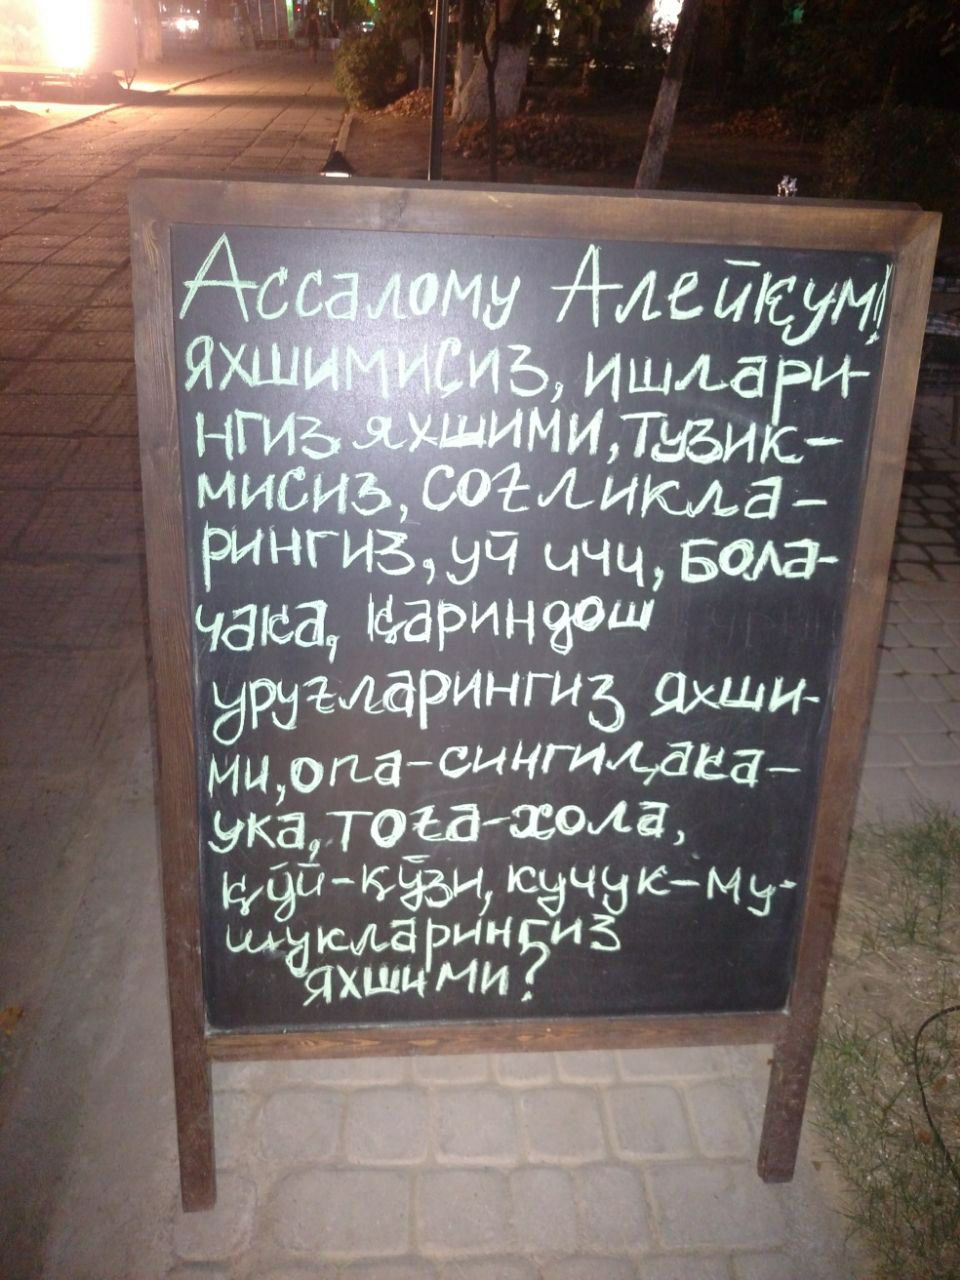 Ассалому Алейкум!
яхшимисиз, ишлари-
нгиз яхшими, тузик-
мисиз, соғликла-
рингиз, уй ичи, бола-
чака, қариндош
уруғларингиз яхши-
ми, опа-сингил, ака-
ука, тоға-хола,
қўй-қўзи, кучук-му-
шукларингиз
яхшими?